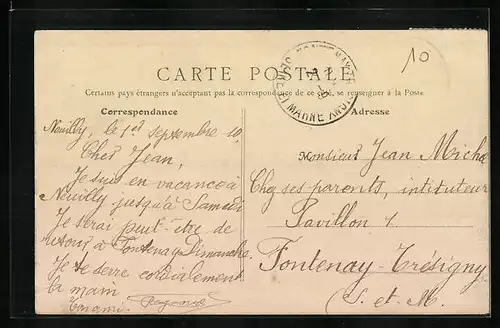 10
CARTE POSTALE
Certains pays étrangers n'acceptant pas la correspondance de ce côté, se renseigner à la Poste
Correspondance
Neuilly, le 1er Septembre 10
Cher Jean,
Je suis en vacances à
Neuilly jusqu'à Samedi
Je serai peut-être de
retour à Fontenay Dimanche
Je te serre cordialement
la main
Ton ami
Adresse
Monsieur Jean
Chez ses parents, instituteur
Pavillon
Fontenay-Trésigny
(S. et M.